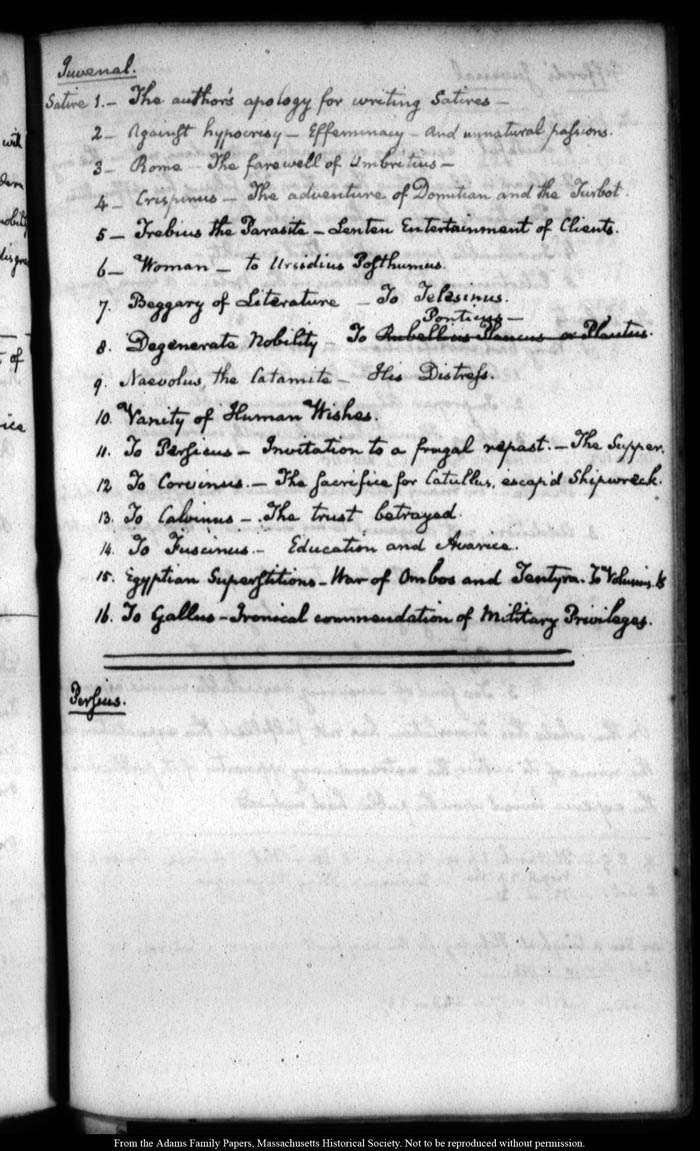 Juvenal.
Satire 1.— The author's apology for writing Satires—
2— Against hypocrisy— Effeminacy— and unnatural passions.
3— Rome The farewell of Umbritius—
4— Crispinus— The adventure of Domitian and the Turbot.
5— Trebius the Parasite— Lenten Entertainment of Clients.
6— Woman— to Ursidius Posthumus.
7. Beggary of Literature— To Telesinus.
Ponticus—
8. Degenerate Nobility— To Rubellius Plancus or Plautus.
9. Naevolus, the Catamite— His Distress.
10. Vanity of Human Wishes.
11. To Persicus— Invitation to a frugal repast.— The Supper.
12 To Corvinus.— The sacrifice for Catullus, escap'd Shipwreck.
13. To Calvinus—. The trust betrayed.
14. To Fuscinus.— Education and Avarice.
15. Egyptian Superstitions— War of Ombos and Tentyra. To Volusius
16. To Gallus— Ironical commendation of Military Privileges.
Persius.
From the Adams Family Papers, Massachusetts Historical Society. Not to be reproduced without permission.